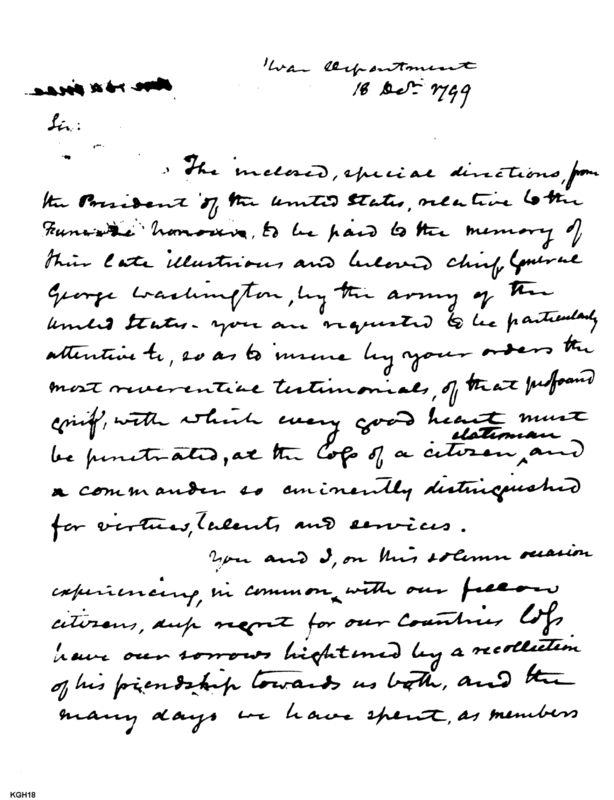 War Department
18 Dec. 1799
Sir:
The inclosed, special directions, from
the President of the United States, relative to the
Funeral honours, to be paid to the memory of
their late illustrious and beloved chief, General
George Washington, by the army of the
United States - you are requested to be particularly
attentive to, so as to insure by your orders the
most reverential testimonials, of that profound
grief, with which every good heart must
be penetrated, at the loss of a citizen, statesman and
a commander so eminently distinguished
for virtues, talents and services.
You and I, on this solemn occasion
experiencing, in common, with our fellow
citizens, deep regret for our Countries loss
have our sorrows hightened by a recollection
of his friendship towards us both, and the
many days we have spent, as members
KGH18